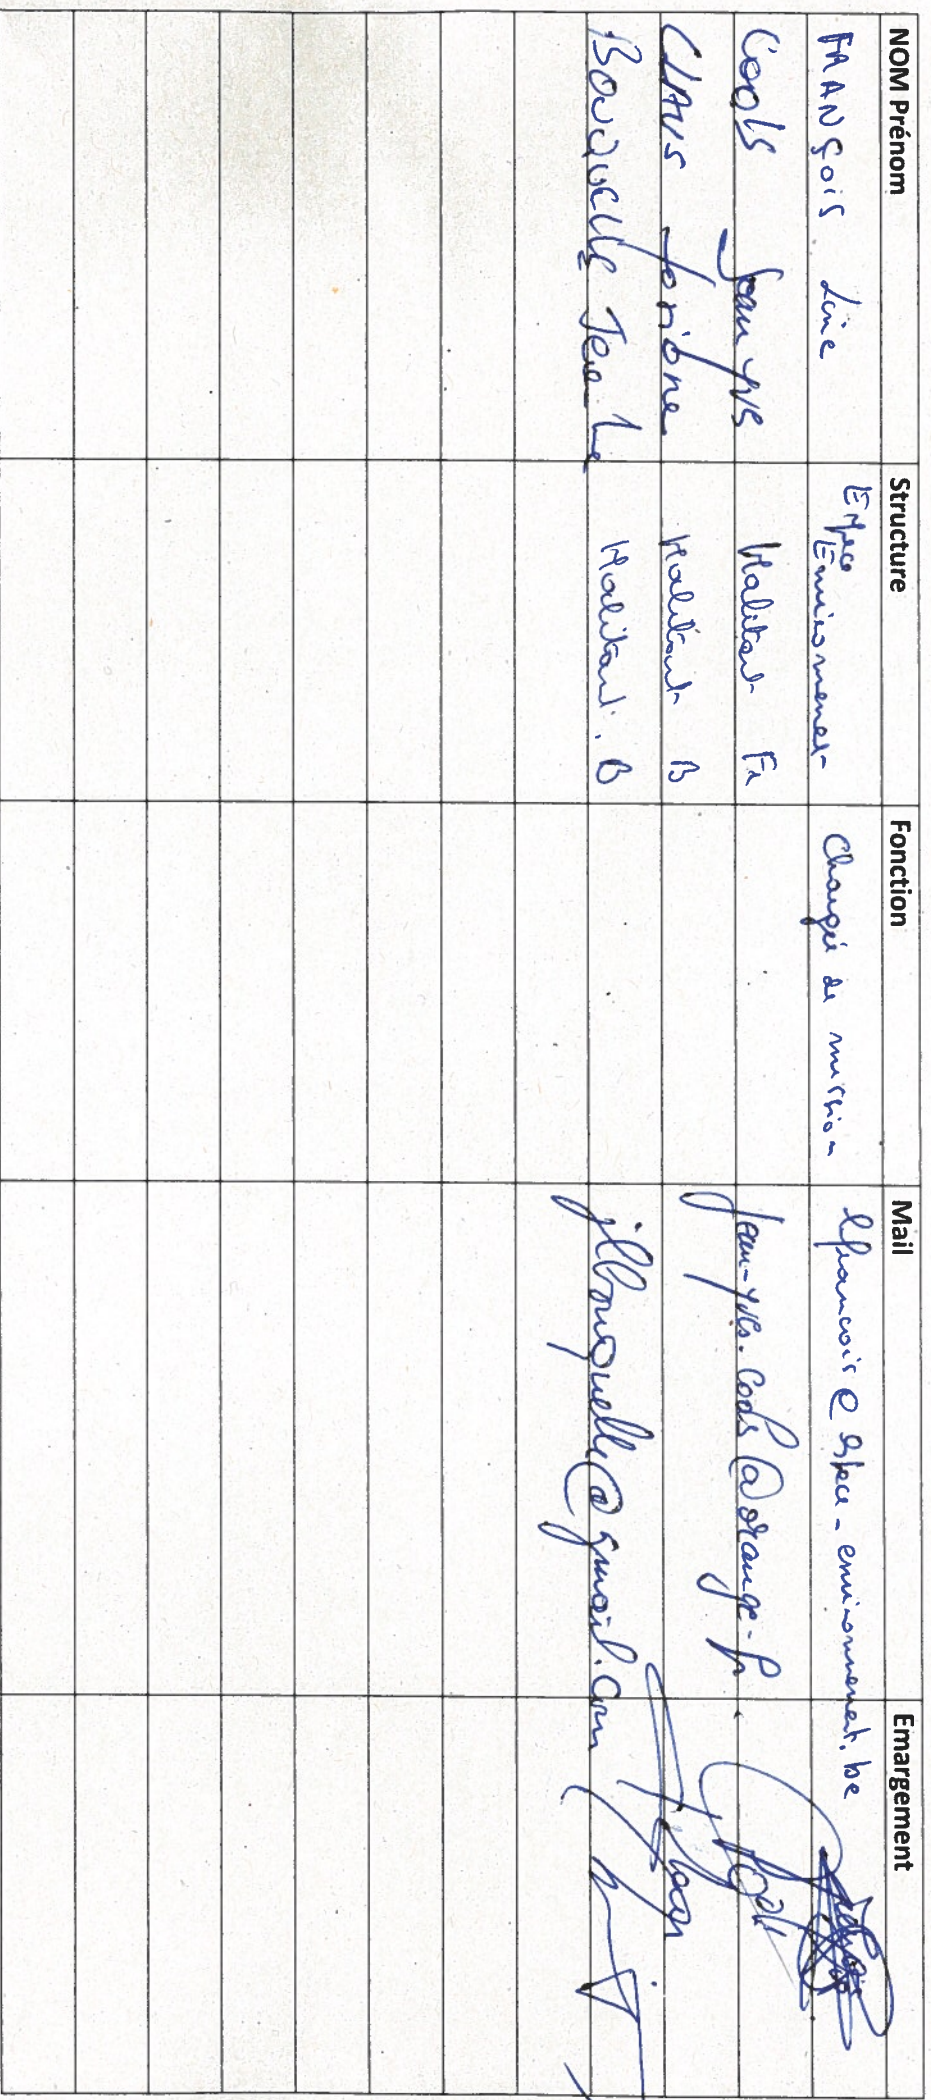 NOM Prénom Structure Fonction Mail Emargement
FRANçois Line Espace Environnement Chargée de mission lfrancois@espace-environnement.be
Cools Jean yves Habitant Fr jean-yves.cools@orange.fr
CLAUS Habitant B
Bouquelle Jean Luc Habitant. B jlbouquelle@gmail.com